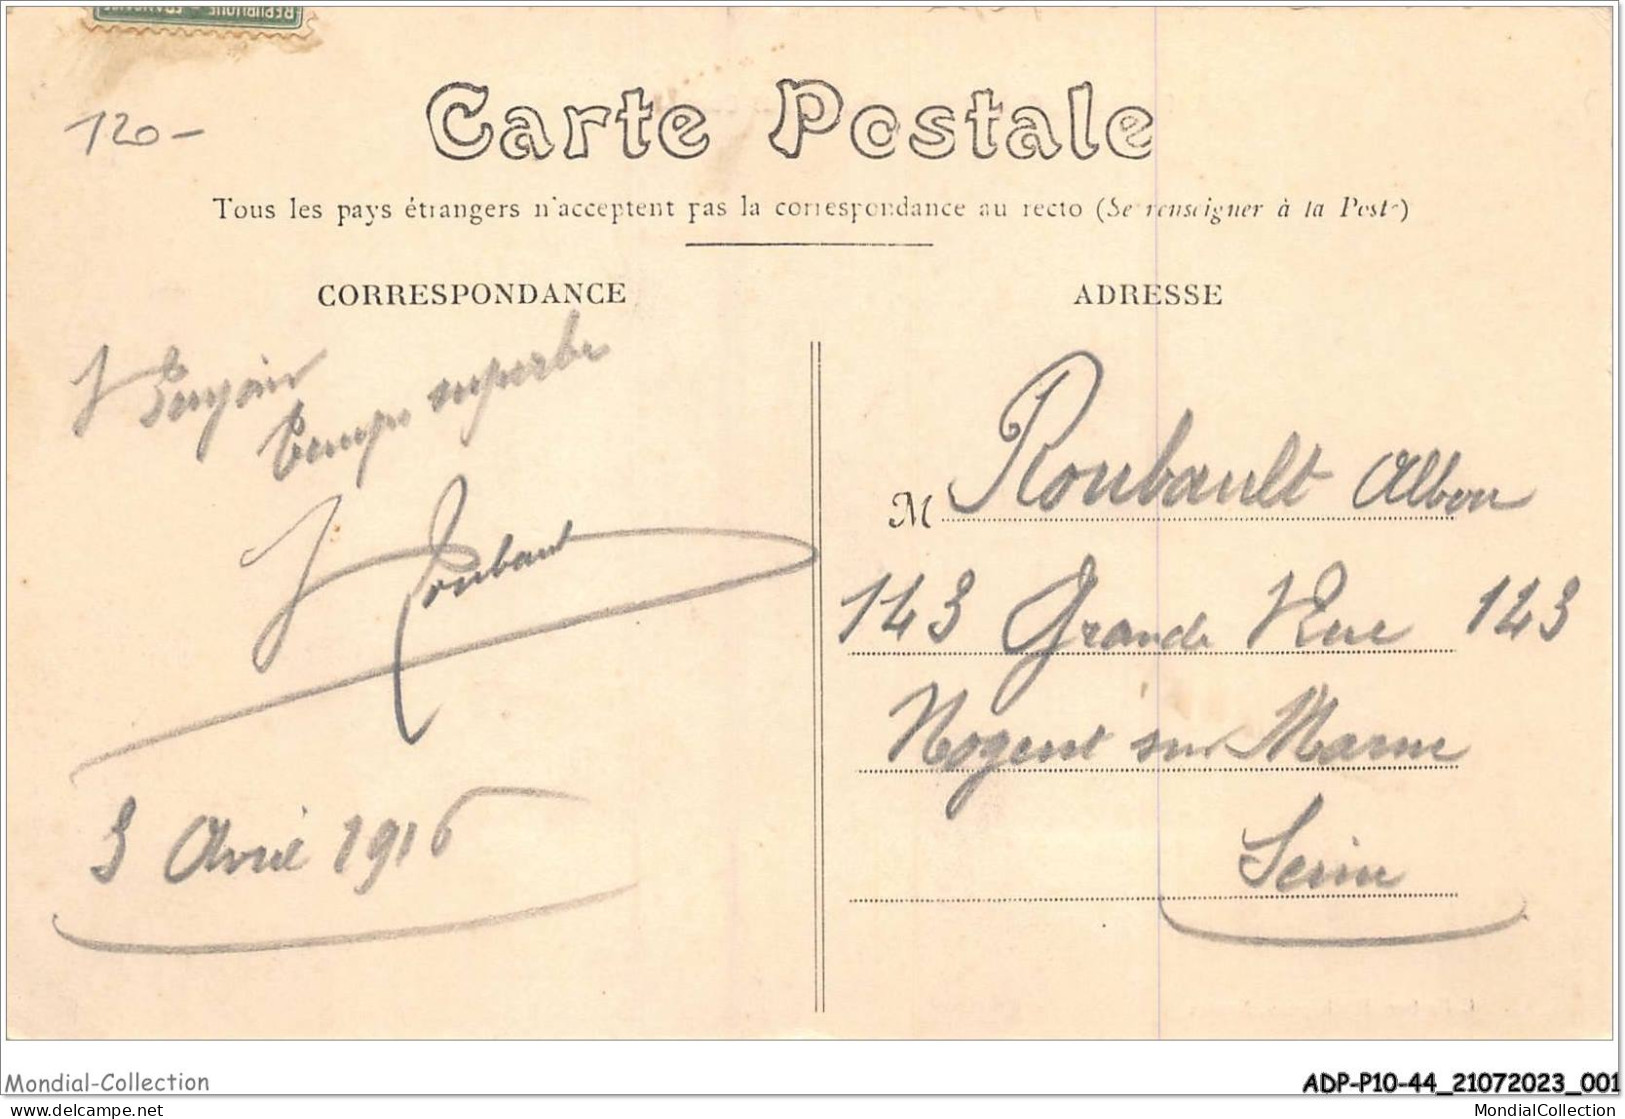 RÉPUBLIQUE FRANÇAISE
120-
Carte Postale
Tous les pays étrangers n'acceptent pas la correspondance au recto (Se renseigner à la Poste)
CORRESPONDANCE
ADRESSE
Bonjour
temps superbe
Roubault
3 Avril 1916
M Roubault Alban
143 Grande Rue 143
Nogent sur Marne
Seine
Mondial-Collection
ADP-P10-44_21072023_001
delcampe.net
MondialCollection